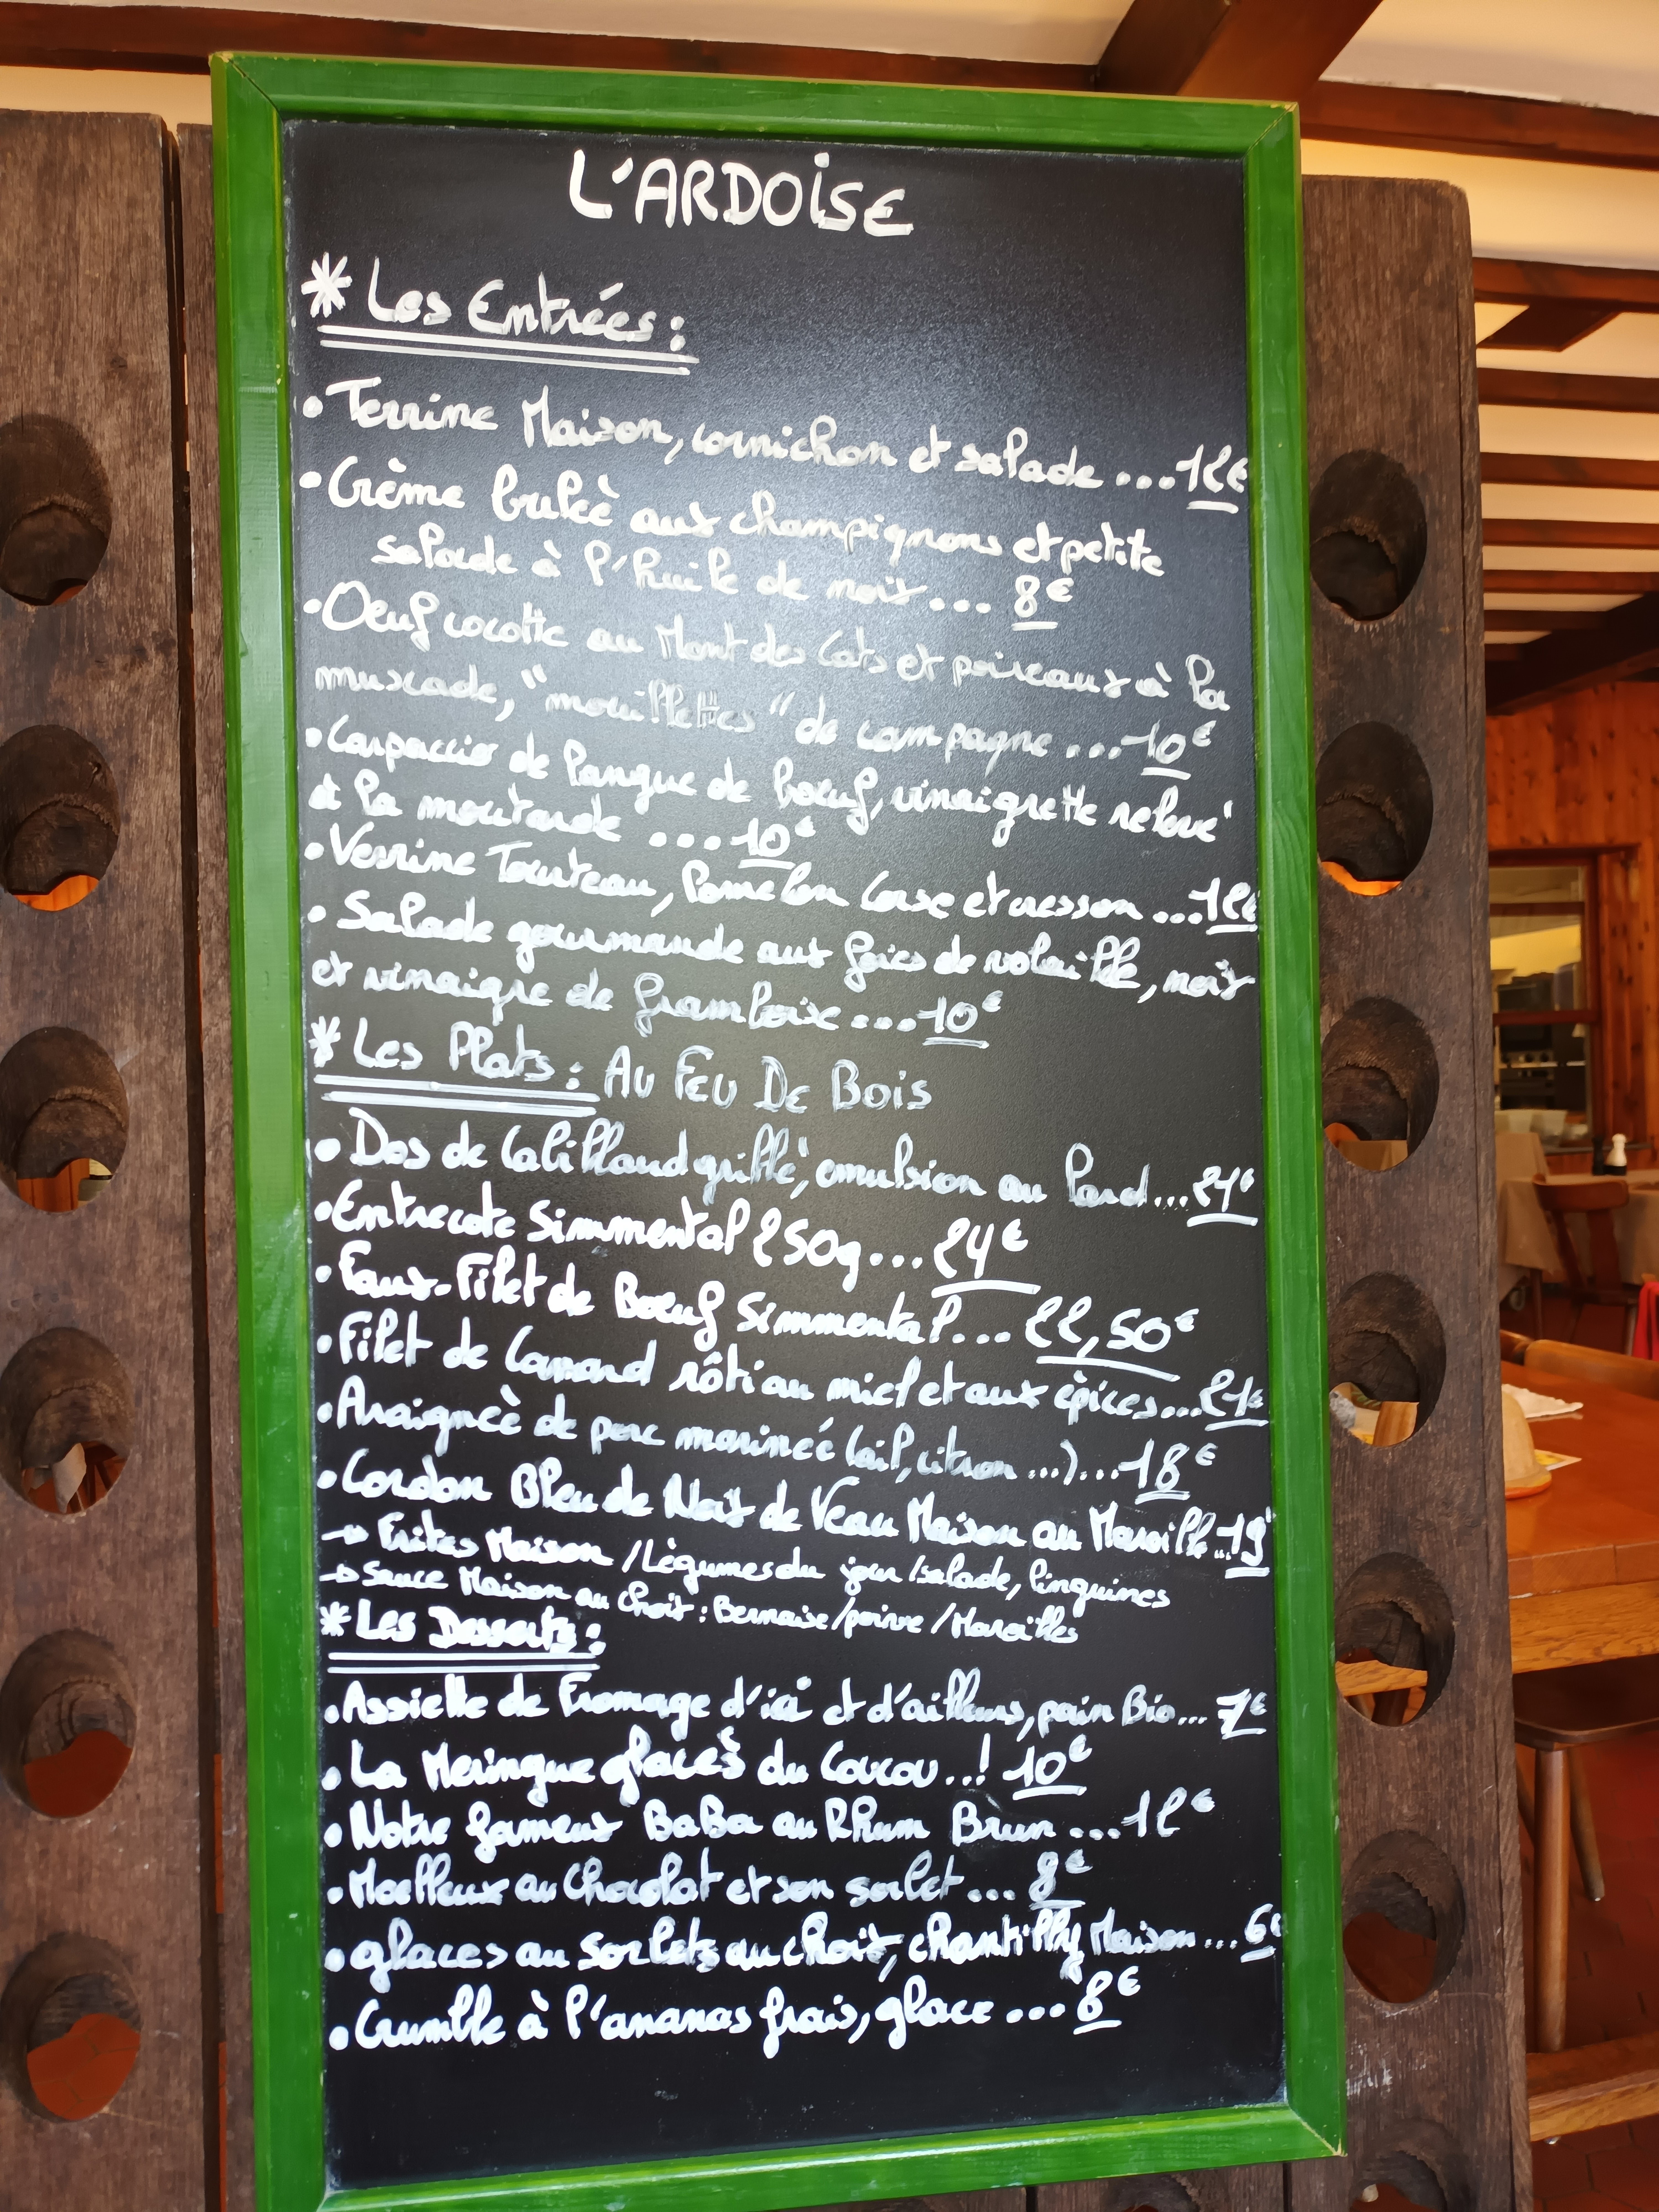 L'ARDOISE
* Les Entrées :
• Terrine Maison, cornichon et salade ... 12€
• Crème brulèè aux champignons et petite
salade à l'huile de noix ... 8€
• Oeuf cocotte au Mont des Cats et poireaux à la
muscade, "mouillettes" de campagne ... 10€
• Carpaccio de langue de boeuf, vinaigrette relevé
à la moutarde ... 10€
• Verrine Tourteau, Pomelon Corse et cresson ... 12€
• Salade gourmande aux foies de volaille, noix
et vinaigre de framboise ... 10€
* Les Plats : AU FEU DE BOIS
• Dos de Cabillaud grillé, emulsion au lard ... 21€
• Entrecote Simmental 250g ... 24€
• Faux-Filet de Boeuf Simmental ... 22,50€
• Filet de Canard rôti au miel et aux èpices ... 21€
• Araignèè de porc marinéé (ail, citron ...) ... 18€
• Cordon Bleu de Noix de Veau Maison au Maroille ... 19
→ Frites Maison / Lègumes du jour / salade, linguines
→ Sauce Maison au Choix : Bernaise / poivre / Maroilles
* Les Desserts :
• Assiette de Fromage d'ici et d'ailleurs, pain Bio ... 7€
• La Meringue glacèè du Coucou ..! 10€
• Notre fameux BaBa au Rhum Brun ... 12€
• Moelleux au Chocolat et son sorbet ... 8€
• glaces au sorbets au choix, chantilly Maison ... 6€
• Crumble à l'ananas frais, glace ... 8€